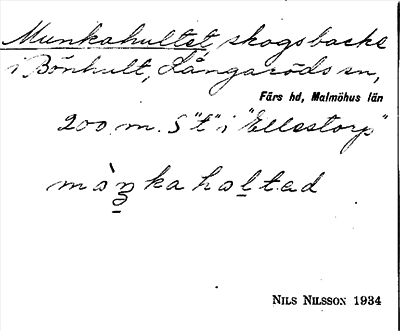 Munkahultet, skogsbacke
i Bönhult, Långaröds sn,
Färs hd, Malmöhus län
200 m. S "t" i "Ellestorp"
mòŋkahaltad
NILS NILSSON 1934